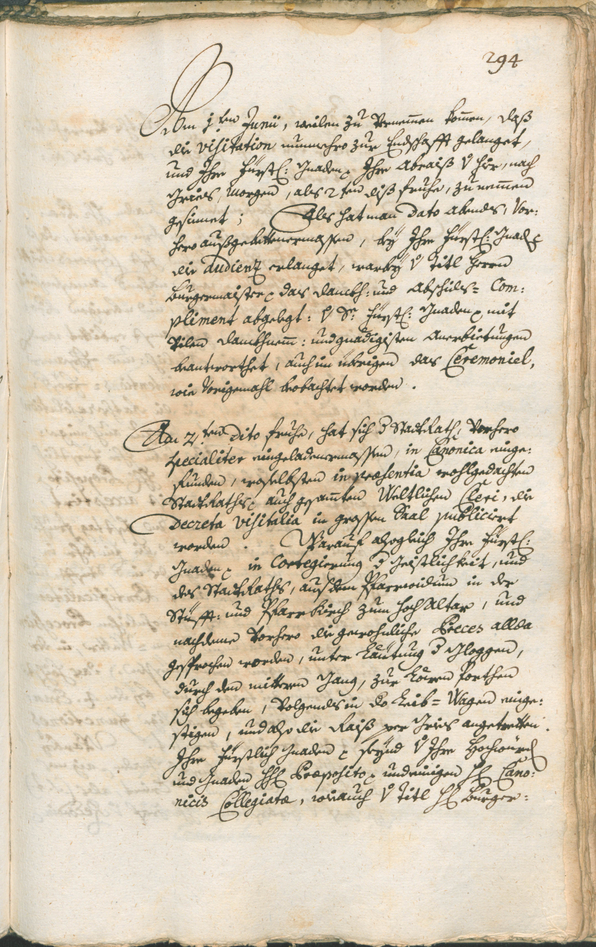 294
Am 1ten Junii, weilen zu vernemen komen, daß
die visitation nunmehro zur Endschafft gelanget,
und Ihre Fürstl: Gnaden Ihre abraiß v hier, nach
Gries, morgen, als 2ten diß fruhe, zu nemmen
gesinnet; Als hat man dato abends, vor-
hero außgebettenermassen, bey Ihro Fürstl: Gnad
die audienz erlanget, warbey v Titl Herrn
Burgermaister das danckh: und abschids= Com:
pliment abgelegt: v Sr Fürstl: Gnaden mit
vilen danckhnem: und gnädigisten anerbietungen
beantworthet, auch im übrigen das Ceremoniel,
wie vorigemahl beobachtet worden.
Am 2ten dito fruhe, hat sich d StattRath, vorhero
specialiter eingeladenermassen, in Canonica einge:
funden, woselbsten in praesentia wohlgedachten
StattRaths auch gesamten Weltlichen Cleri, die
Decreta visitalia in grossen Saal publiciert
worden. Warauf alsogleich Ihre Fürstl:
Gnaden in Cortegierung d Geistlichkeit, und
des StattRaths, auf dem Pfarrwidum in der
Stüfft: und Pfarrkirch zum hochaltar, und
nachdeme vorhero die gewohnliche Preces allda
gesprochen worden, unter Leüttung d Gloggen,
durch den mittern Gang, zur Porthen
sich begeben, volgends in do Leib=Wagen einge:
stigen, und also die Raiß per Gries angetretten.
Ihre Fürstlich Gnaden seynd v Ihre Hochwürd
und Gnaden H Praeposito und einigen H Cano:
nicis Collegiatae, wie auch v Titl H Burger: